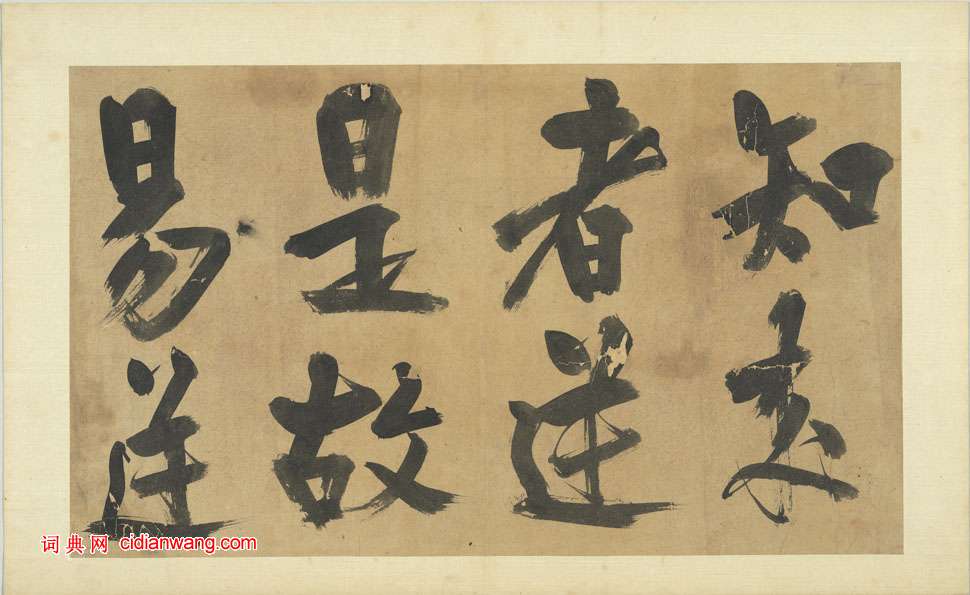 知來
者逆
是故
易逆
词典网 cidianwang.com